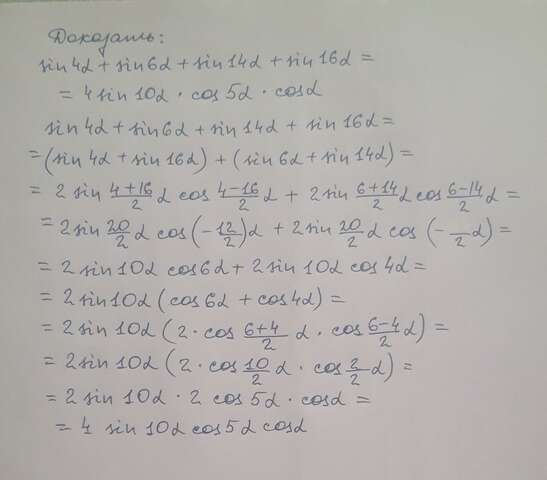 Доказать:
sin4α + sin6α + sin14α + sin16α =
= 4 sin 10α · cos 5α · cosα
sin4α + sin6α + sin14α + sin16α =
= (sin 4α + sin16α) + (sin 6α + sin 14α) =
= 2 sin (4+16)/2 α cos (4-16)/2 α + 2sin (6+14)/2 α cos (6-14)/2 α =
= 2sin 20/2 α cos (-12/2)α + 2sin 20/2 α cos (- /2 α) =
= 2sin10α cos6α + 2sin 10α cos 4α =
= 2sin10α (cos6α + cos4α) =
= 2sin 10α (2 · cos (6+4)/2 α · cos (6-4)/2 α) =
= 2sin 10α (2 · cos 10/2 α · cos 2/2 α) =
= 2sin 10α · 2 cos 5α · cosα =
= 4 sin 10α cos5α cosα